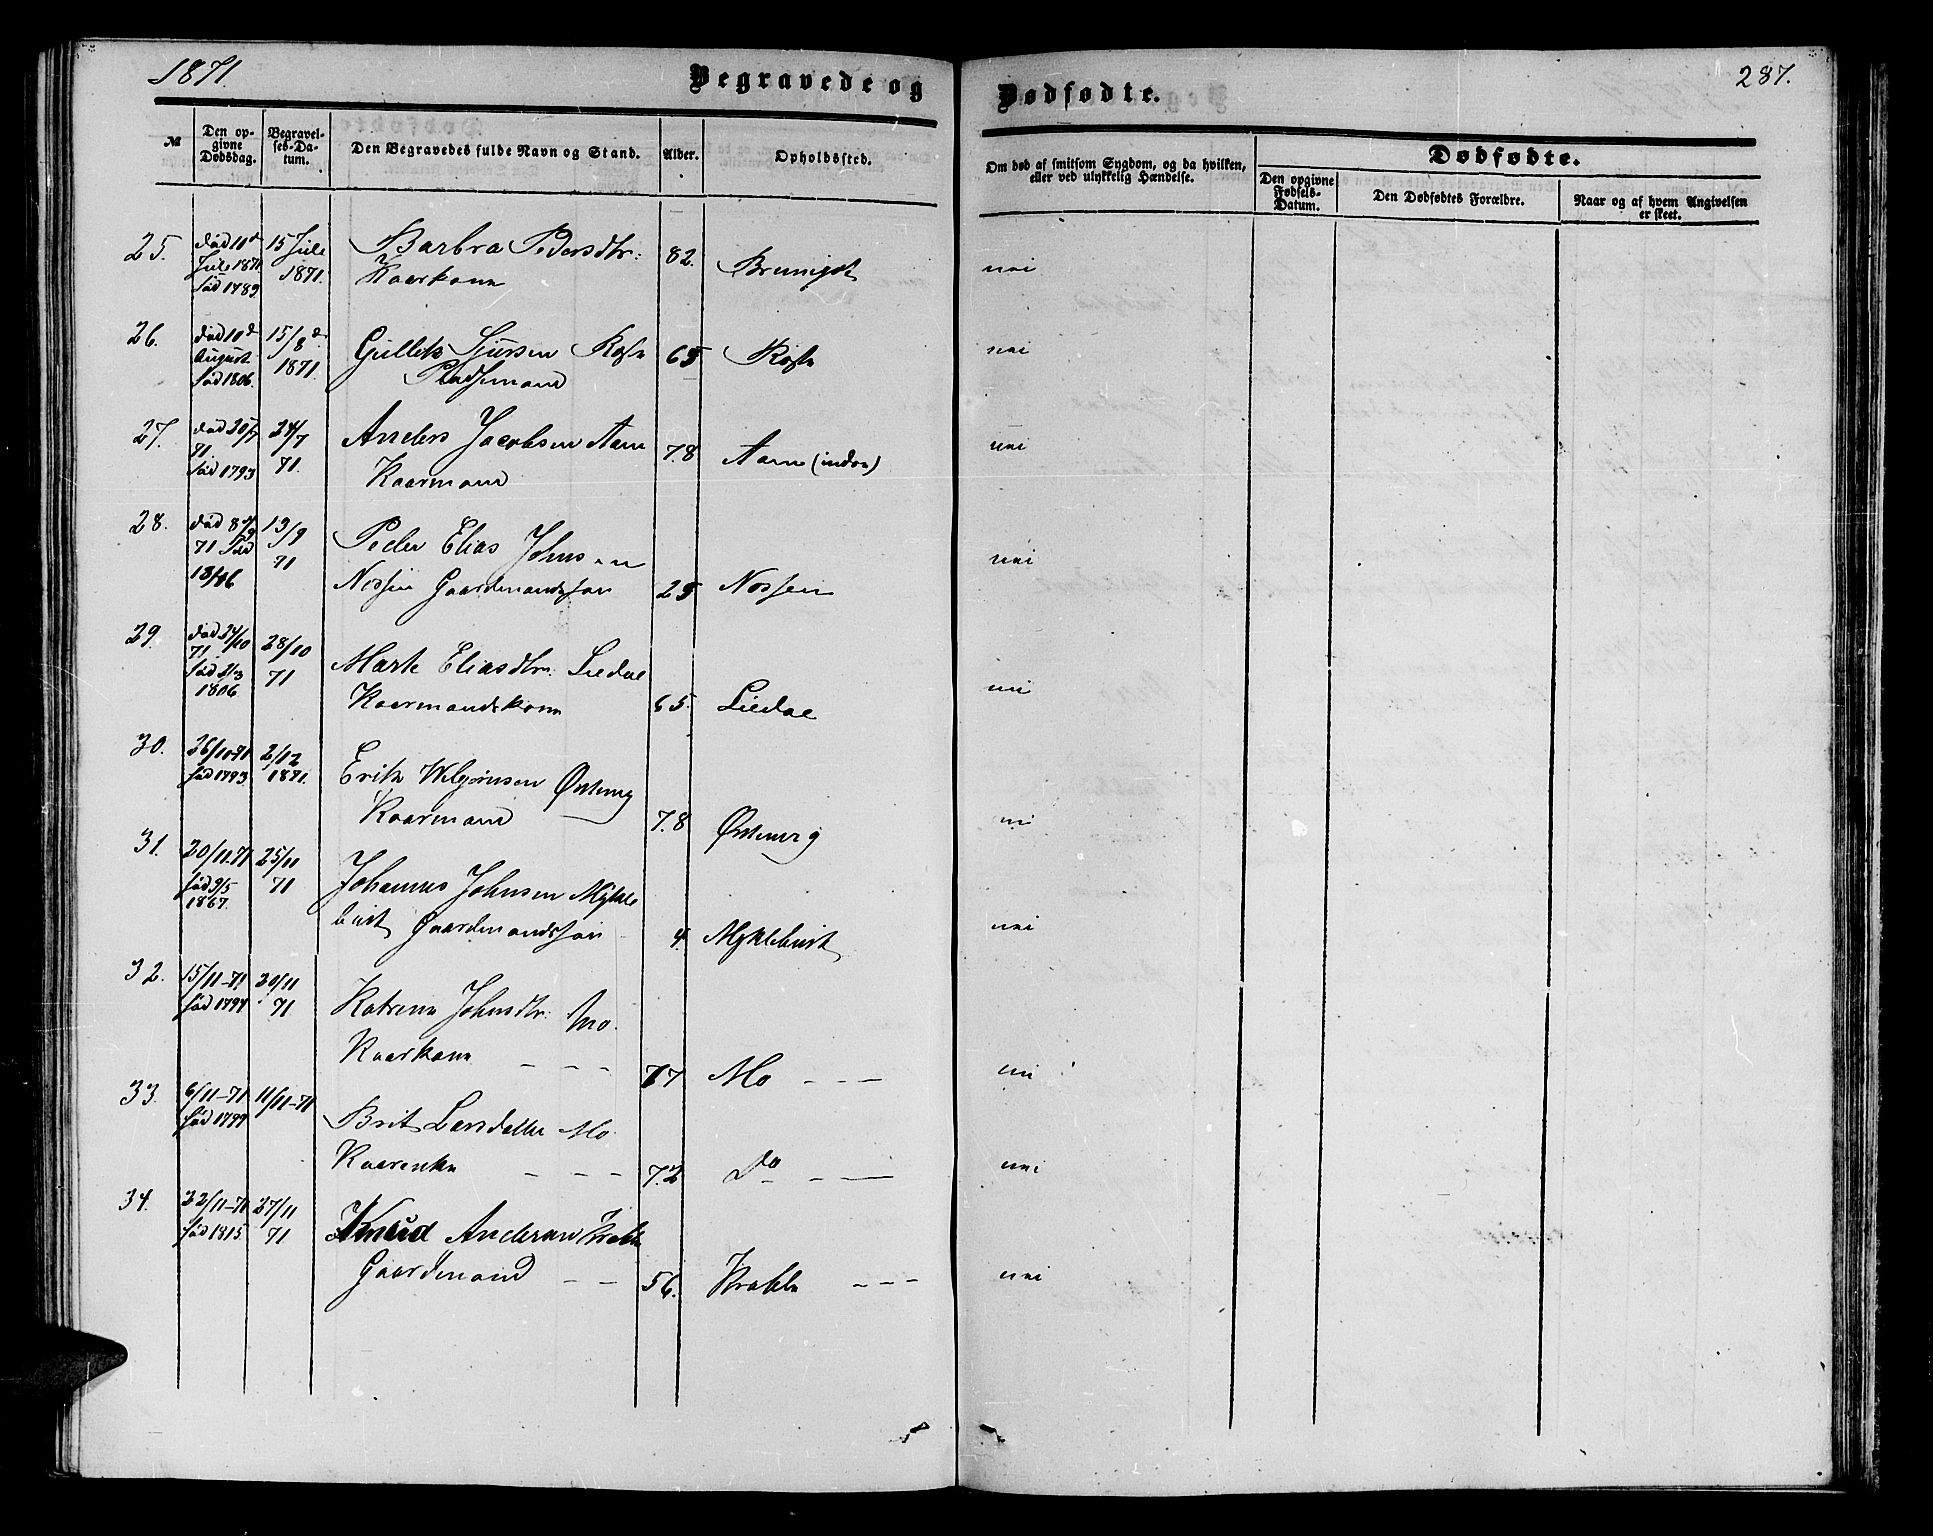 1871.
Begravede og
Dødfødte.
287.
№
Den opgivne Dødsdag.
Begravelses-Datum.
Den Begravedes fulde Navn og Stand.
Alder.
Opholdssted.
Om død af smitsom Sygdom, og da hvilken, eller ved ulykkelig Hændelse.
Dødfødte.
Den opgivne Fødsels-Datum.
Den Dødfødtes Forældre.
Naar og af hvem Angivelsen er skeet.
25. død 10de 15 Jule Barbra Pedersdtr: 82.
Jule 1871 1871. Kaarkone
fød 1789.
26. død 10de 15/8de Gullek Sjursen 65
August 1871. Pladsemand
fød 1806.
27. død 20/7 24/7 Anders Jacobsen Aam 78 Aam (indre)
71. 71. Kaarmand
fød 1793
28. død 13/9 Peder Elias Johnsen
71 fød 71 Nossen Gaardmandssøn 25 Nossen
29. død 24/10 28/10 Marte Eliasdtr: Liedal
71. 71 Kaarmandskone 65. Liedal
fød
1806
30. 26/10-71 2/12 Erik
fød 1793. 1871. Kaarmand 78
31. 20/11-71 25/11 Johannes Johnsen Mykle
fød 9/5 71 bust Gaardmandssøn 4. Myklebust
1867.
32. 15/11-71 20/11 Katrine Johnsdtr: Mo.
fød 1794 71 Kaarkone - - - 77 Mo - - -
33. 6/11-71 11/11-71 Brit Larsdatter Mo
fød 1799 Kaarenke - - - 72 Do - - -
34. 22/11-71 27/11 Knud Andersen Krable
fød 1815 71 Gaardmand - - 56. Krable - - -